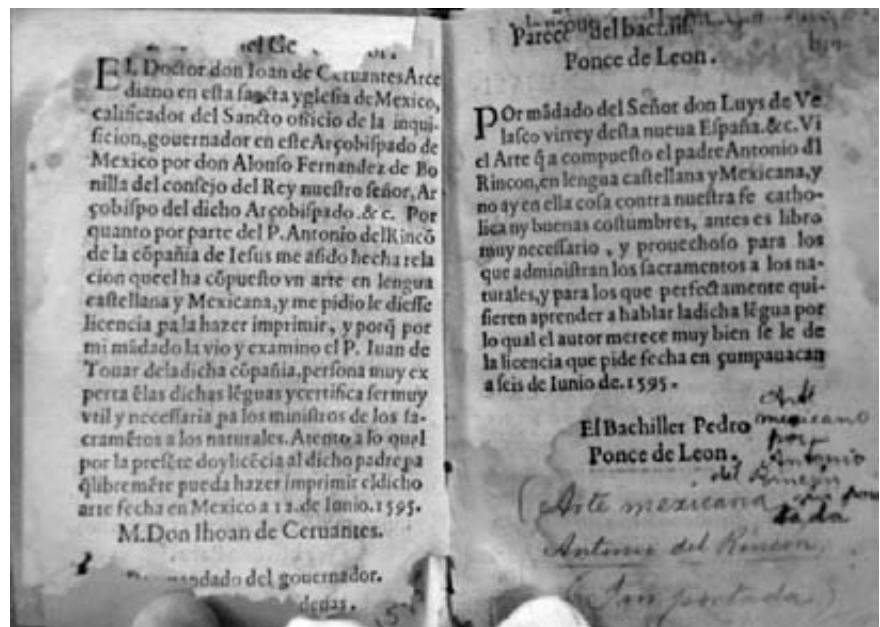 El Doctor don Ioan de CeruantesArce
diano en esta sancta yglesia de Mexico,
calificador del Sancto officio de la inqui-
sicion,gouernador en este Arçobispado de
Mexico por don Alonso Fernandez de Bo
nilla del consejo del Rey nuestro señor, Ar
çobispo del dicho Arçobispado.&c. Por
quanto por parte del P.Antonio delRincõ
de la cõpañia de Iesus me asido hecha rela
cion queel ha cõpuesto vn arte en lengua
castellana y Mexicana,y me pidio le diesse
licencia pa la hazer imprimir, y porq̃ por
mi mãdado la vio y examino el P. Iuan de
Touar deladicha cõpañia, persona muy ex
perta ẽlas dichas lẽguas ycertifica sermuy
vtil y necessaria pa los ministros de los sa-
cramẽtos a los naturales. Atento a lo qual
por la presẽte doylicẽcia al dicho padre pa
q̃libremẽte pueda hazer imprimir eldicho
arte fecha en Mexico a 12.de Iunio.1595.
M.Don Ihoan de Ceruantes.
mandado del gouernador.
del bachill.
Ponce de Leon.
POr mãdado del Señor don Luys de Ve
lasco virrey desta nueua España.&c.Vi
el Arte q̃ a compuesto el padre Antonio dl
Rincon,en lengua castellana y Mexicana,y
no ay en ella cosa contra nuestra fe catho-
lica ny buenas costumbres, antes es libro
muy necessario , y prouechoso para los
que administran los sacramentos a los na-
turales,y para los que perfectamente qui-
sieren aprender a hablar ladicha lẽgua por
lo qual el autor merece muy bien se le de
la licencia que pide fecha en çumpauacan
a seis de Iunio de.1595.
El Bachiller Pedro
Ponce de Leon.
Arte
mexicano
por
Antonio
del Rincon
sin por
tada
(Arte mexicana
Antonio del Rincon,
(Sin portada)